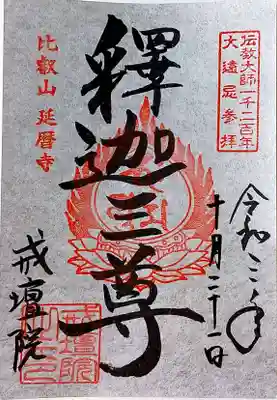 伝教大師一千二百年
大遠忌参拝
令和三年
十月二十一日
釋迦三尊
比叡山 延暦寺
戒壇院